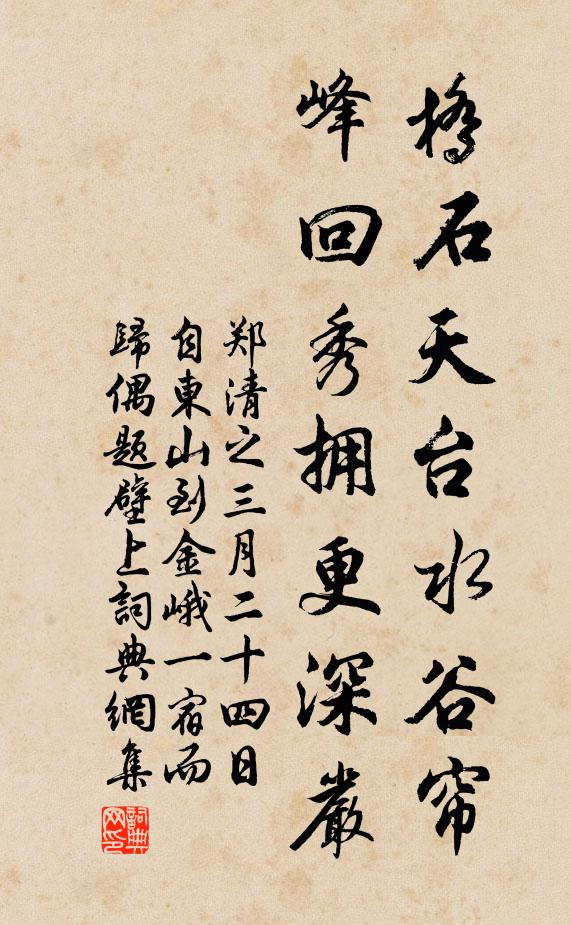 桥石天台水谷帘
峰回秀拥更深嚴
郑清之三月二十四日
自東山到金峨一宿而
歸偶题壁上詞典網集
詞典网印